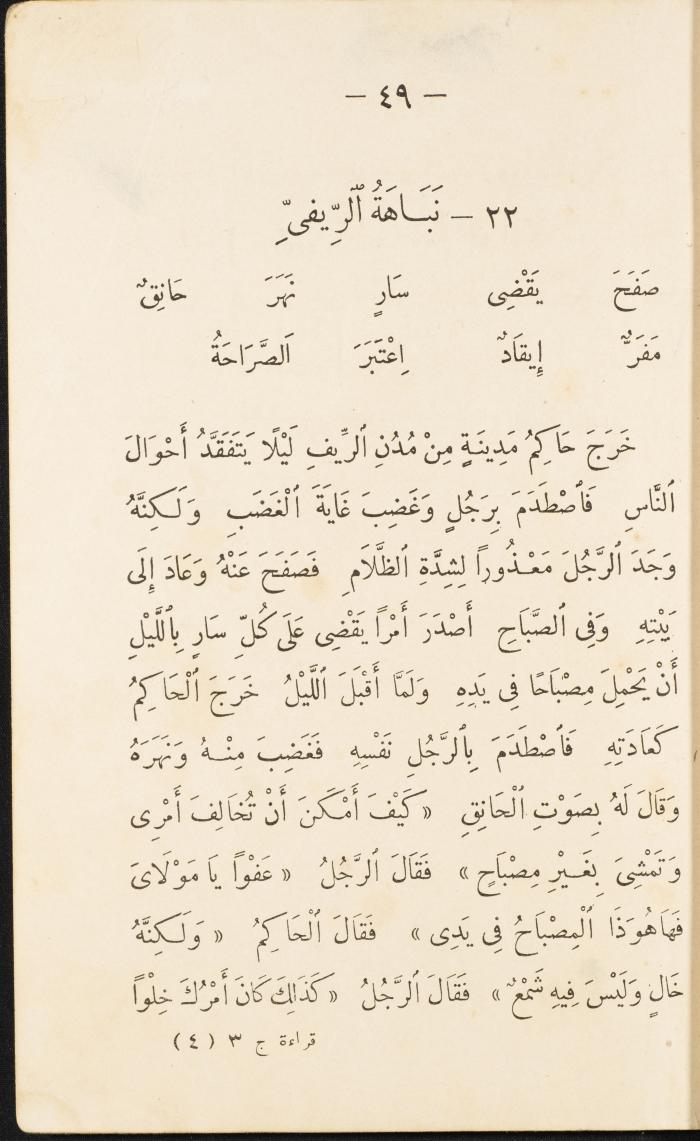 — ٤٩ —
٢٢ — نَبَاهَةُ ٱلرِّيفِىِّ
صَفَحَ يَقْضِى سَارٍ نَهَرَ حَانِقٌ
مَفَرٌّ إِيقَادٌ اِعْتَبَرَ اَلصَّرَاحَةُ
خَرَجَ حَاكِمُ مَدِينَةٍ مِنْ مُدُنِ ٱلرِّيفِ لَيْلًا يَتَفَقَّدُ أَحْوَالَ
ٱلنَّاسِ فَٱصْطَدَمَ بِرَجُلٍ وَغَضِبَ غَايَةَ ٱلْغَضَبِ وَلَـكِنَّهُ
وَجَدَ ٱلرَّجُلَ مَعْـذُوراً لِشِدَّةِ ٱلظَّلَامِ فَصَفَحَ عَنْهُ وَعَادَ إِلَى
بَيْتِهِ وَفِى ٱلصَّبَاحِ أَصْدَرَ أَمْراً يَقْضِى عَلَى كُلِّ سَارٍ بِٱللَّيْلِ
أَنْ يَحْمِلَ مِصْبَاحًا فِى يَدِهِ وَلَمَّا أَقْبَلَ ٱللَّيْلُ خَرَجَ ٱلْحَاكِمُ
كَعَادَتِهِ فَٱصْطَدَمَ بِٱلرَّجُلِ نَفْسِهِ فَغَضِبَ مِنْـهُ وَنَهَرَهُ
وَقَالَ لَهُ بِصَوْتِ ٱلْحَانِقِ « كَيْفَ أَمْكَنَ أَنْ تُخَالِفَ أَمْرِى
وَتَمْشِىَ بِغَـيْرِ مِصْبَاحٍ » فَقَالَ ٱلرَّجُلُ « عَفْوًا يَا مَوْلَاىَ
فَهَاهُوَذَا ٱلْمِصْبَاحُ فِى يَدِى » فَقَالَ ٱلْحَاكِمُ « وَلَـكِنَّهُ
خَالٍ وَلَيْسَ فِيهِ شَمْعٌ » فَقَالَ ٱلرَّجُلُ « كَذَلِكَ كَانَ أَمْرُكَ خِلْوًا
قراءة ج ٣ (٤)